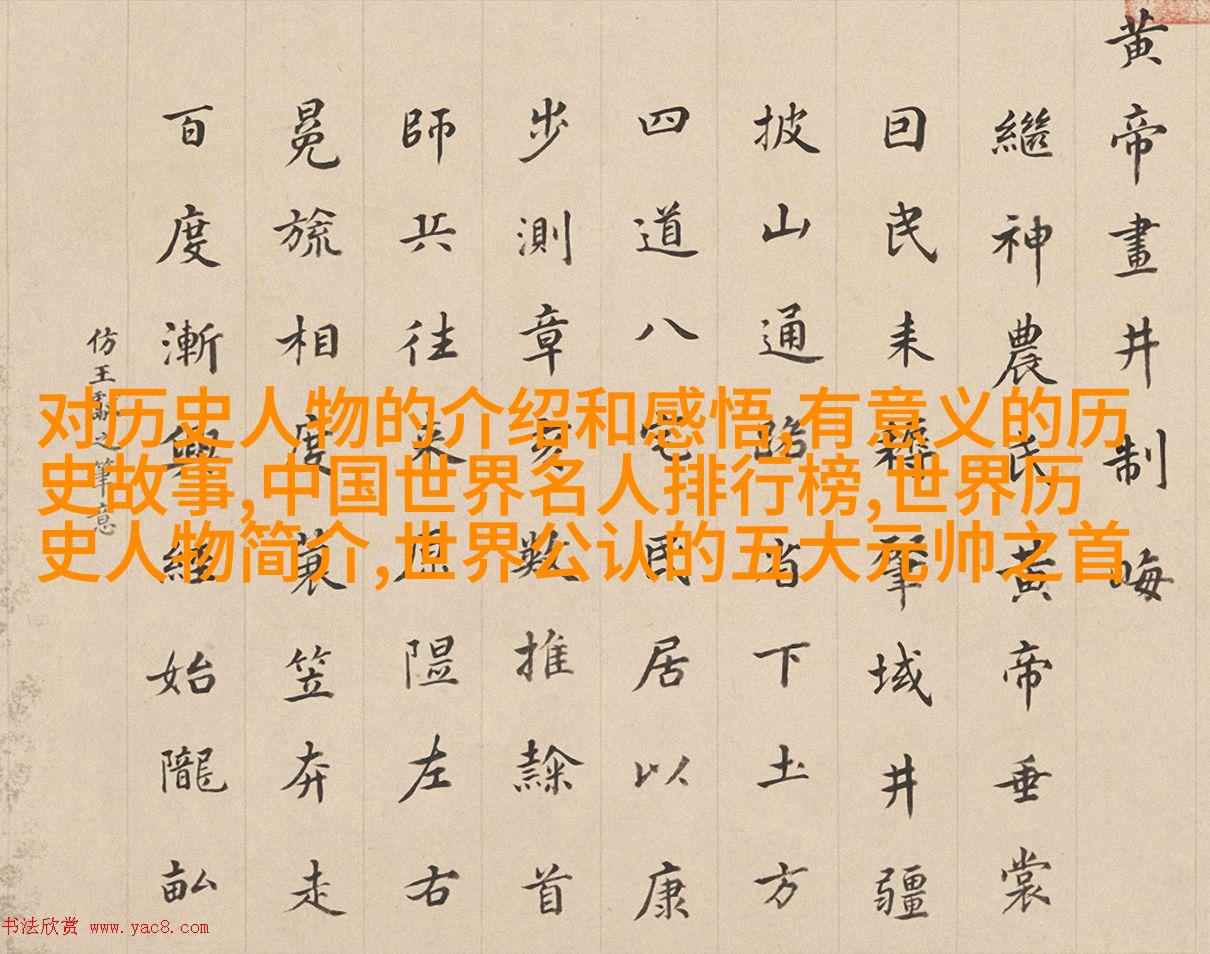 对历史人物的介绍和感悟,有意义的历
史故事,中国世界名人排行榜,世界历
史人物简介,世界公认的五大元帅之首
黄帝畫井制
繼神農氏黄帝垂裳
囙民耒耨肇域井疆
披山通路首下土方
四道八宅民居以康
步測章亥數推隸首
師兵往来原隰左右
冕旒相度蓑笠奔走
百度漸興經始隴畝
仿王之筆意
书法欣赏 www.yac8.com